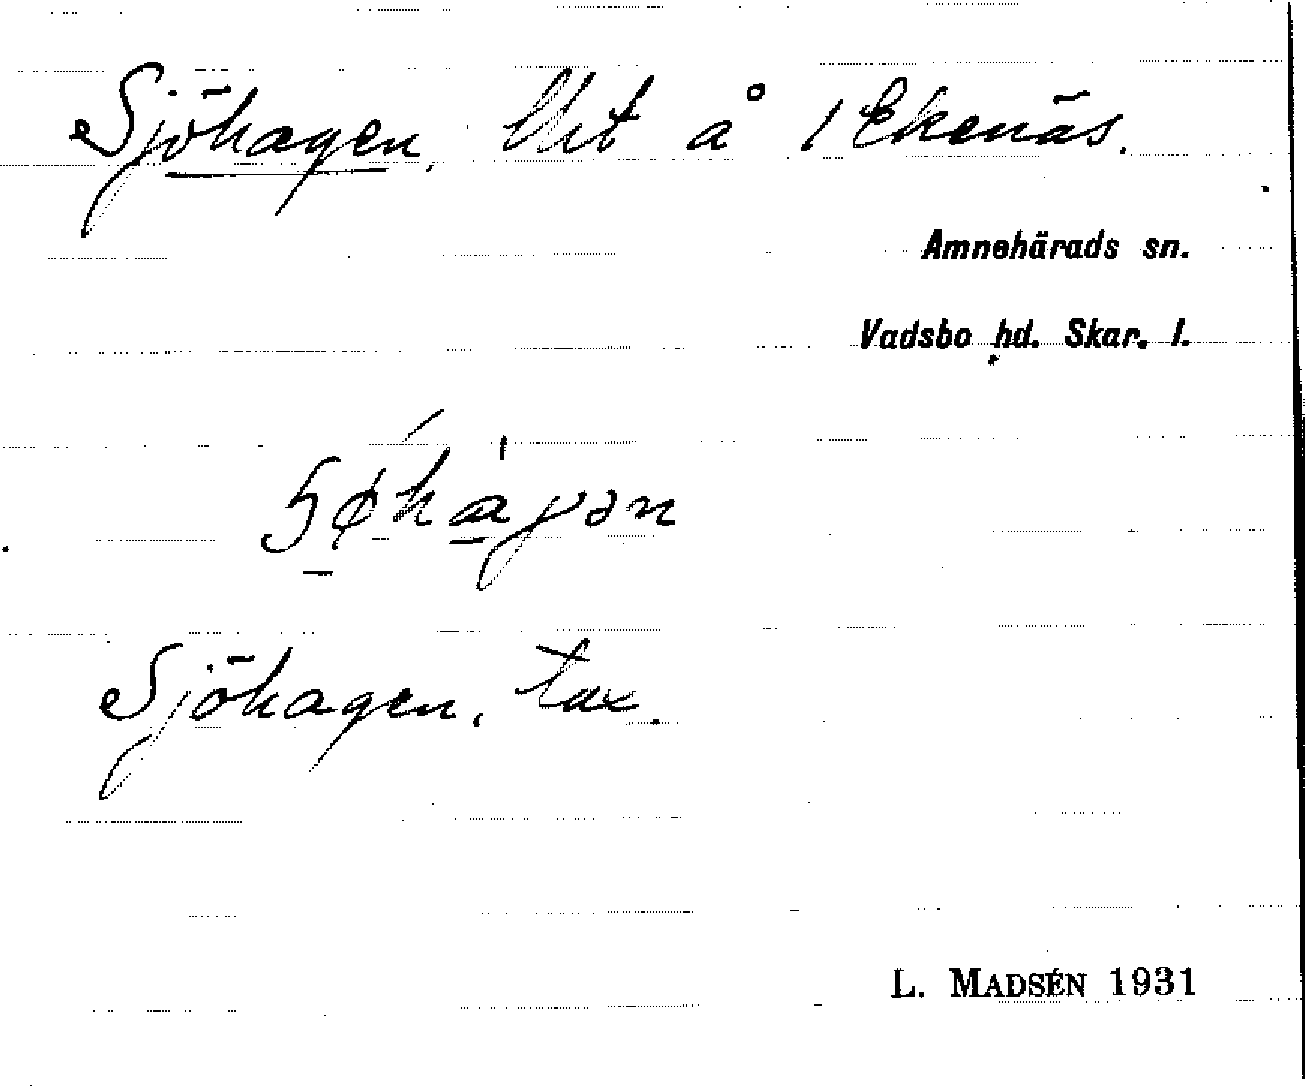 Sjöhagen, lht å 1 Ekenäs.
Amnehärads sn.
Vadsbo hd. Skar. l.
Sjöhagen, tax.
L. MADSÉN 1931